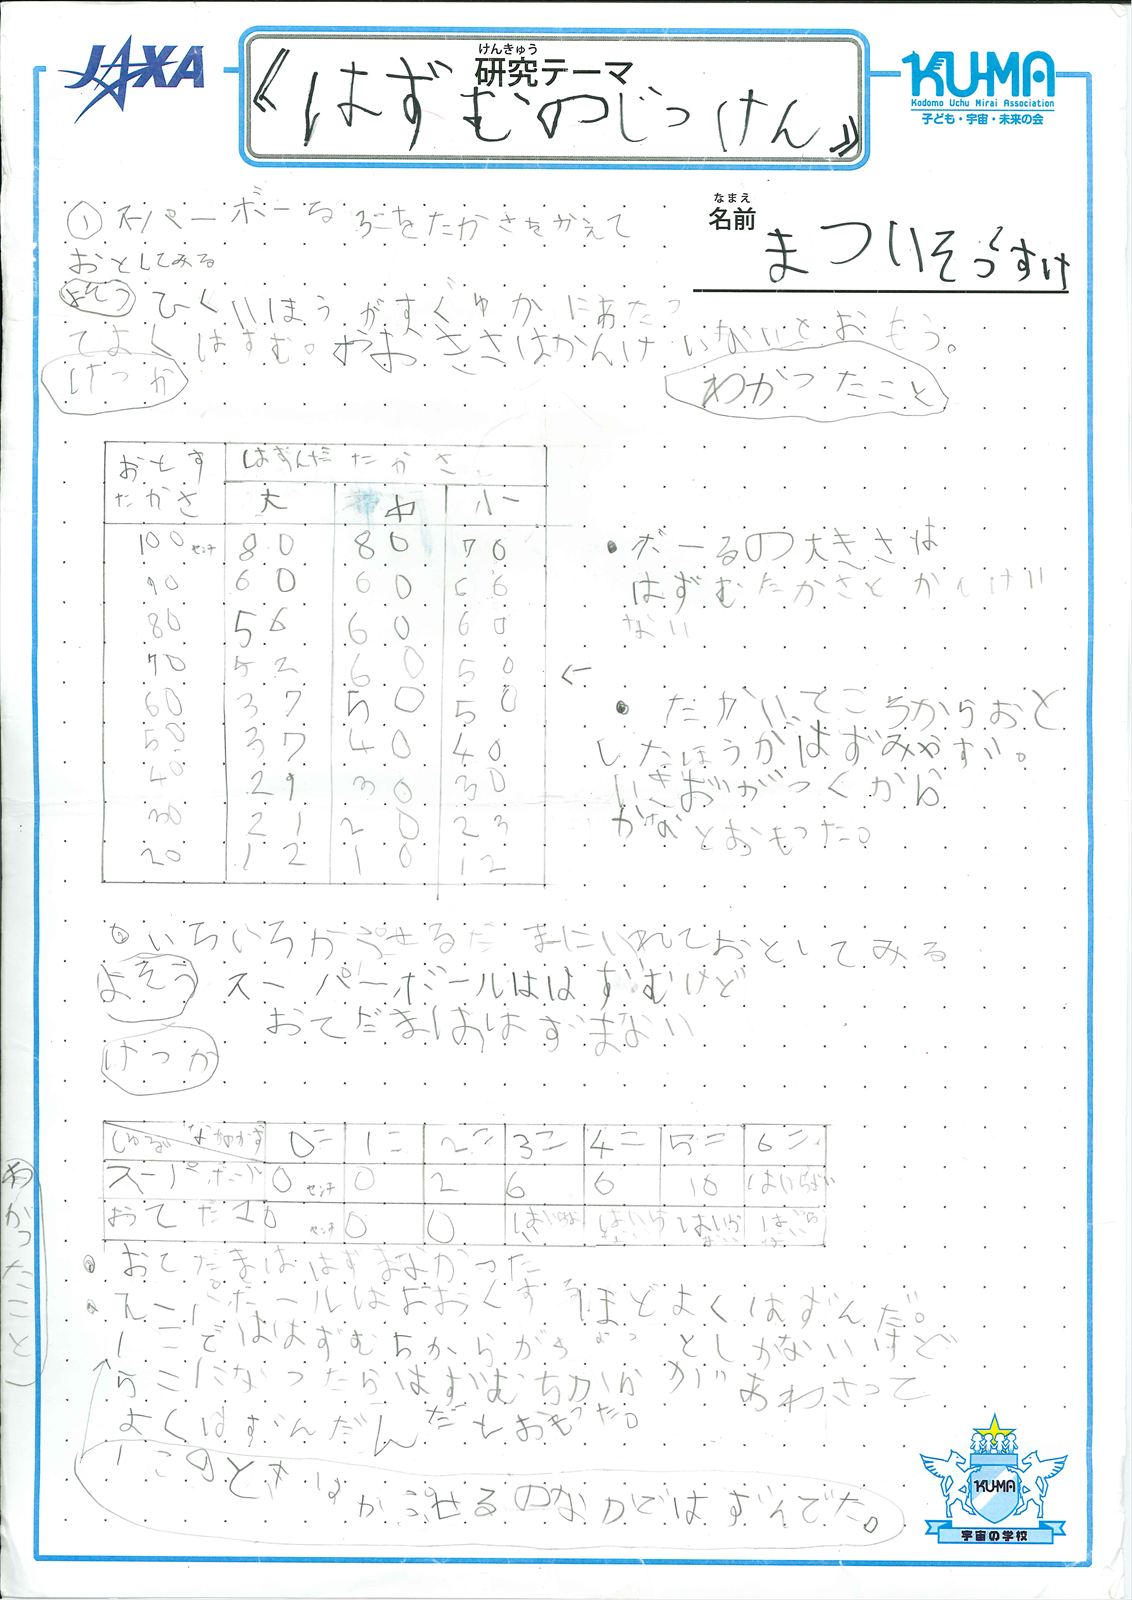 JAXA
けんきゅう
研究テーマ
《はずむのじっけん》
KU-MA
Kodomo Uchu Mirai Association
子ども・宇宙・未来の会
なまえ
名前
まついそうすけ
① スーパーボーる をたかさをかえて
おとしてみる
よそう ひくいほうがすぐゆかにあたっ
てよくはずむ。おおきさはかんけいないとおもう。
けっか
わかったこと
おとす はずんだたかさ
たかさ 大 中 小
100センチ 80 80 70
90 60 60 66
80 56 60 60
70 52 60 50
60 37 50 50
50 37 40 40
40 29 30 30
30 21 20 23
20 12 10 12
・ボーるの大きさは
はずむたかさとかんけい
ない
←
・たかいところからおと
したほうがはずみやすい。
いきおいがつくから
かなとおもった。
② いろいろかぷせるだまにいれておとしてみる
よそう スーパーボールははずむけど
おてだまははずまない
けっか
しゅるい なかのかず 0こ 1こ 2こ 3こ 4こ 5こ 6こ
スーパーボール 0センチ 0 2 6 6 10 はいらない
おてだま 0センチ 0 0 はいらない はいらない はいらない はいらない
わかったこと
・おてだまははずまなかった
・スーパーボールはおおくするほどよくはずんだ。
1こでははずむちからが としかないけど
5こになったらはずむちからがあわさって
よくはずんだんだとおもった。
1このときはかぷせるのなかではずんでた。
KU-MA
宇宙の学校